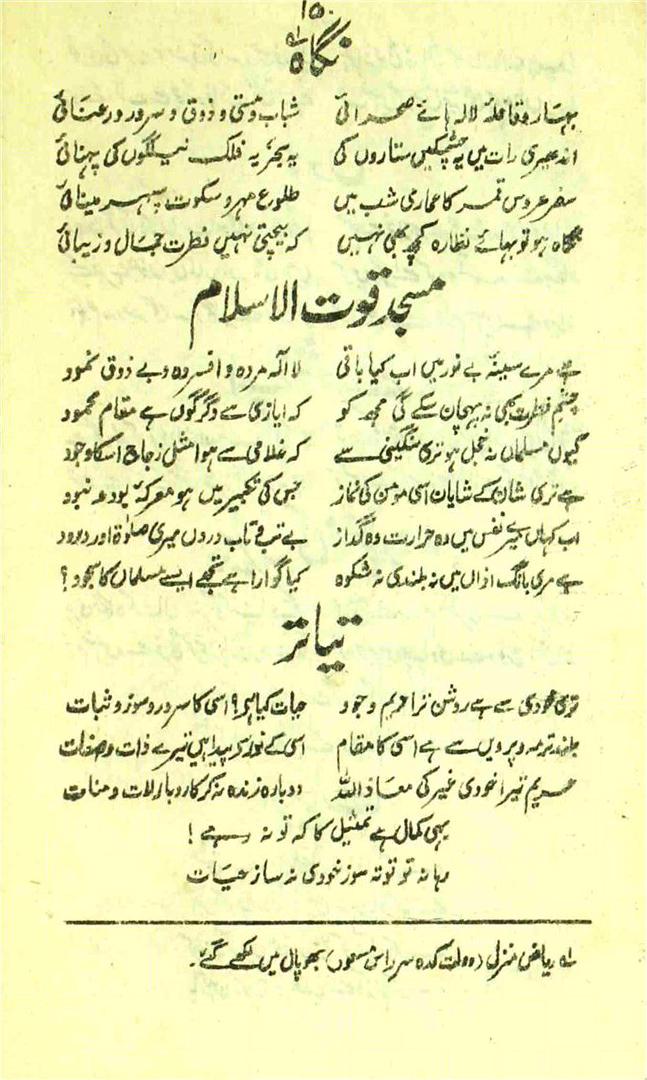 ۱۵۰
نگاہ ؎۱
بہار و قافلۂ لالہ ہائے صحرائی شباب و مستی و ذوق و سرور و رعنائی
اندھیری رات میں یہ چشمکیں ستاروں کی یہ بحر یہ فلک نیلگوں کی پہنائی
سفر عروس قمر کا عماری شب میں طلوع مہر و سکوت سپہر مینائی
نگاہ ہو تو بہائے نظارہ کچھ بھی نہیں کہ بیچتی نہیں فطرت جمال و زیبائی
مسجد قوت الاسلام
ہے مرے سینۂ بے نور میں اب کیا باقی لا الٰہ مردہ و افسردہ و بے ذوق نمود
چشم فطرت بھی نہ پہچان سکے گی مجھ کو کہ ایازی سے دگرگوں ہے مقام محمود
کیوں مسلماں نہ خجل ہو تری سنگینی سے کہ غلامی سے ہوا مثل زجاج اسکا وجود
ہے تری شان کے شایان اسی مومن کی نماز جس کی تکبیر میں ہو معرکۂ بود و نبود
اب کہاں میرے نفس میں وہ حرارت وہ گداز بے تب و تاب دروں میری صلوٰۃ اور درود
ہے مری بانگ اذاں میں نہ بلندی نہ شکوہ کیا گوارا ہے تجھے ایسے مسلماں کا سجود؟
تیاتر
تری خودی سے ہے روشن ترا حریم وجود حیات کیا ہے؟ اسی کا سرور و سوز و ثبات
بلند تر مہ و پرویں سے ہے اسی کا مقام اسی کے نور سے پیدا ہیں تیرے ذات و صفات
حریم تیرا خودی غیر کی معاذ اللہ دوبارہ زندہ نہ کر کاروبار لات و منات
یہی کمال ہے تمثیل کا کہ تو نہ رہے!
رہا نہ تو تو نہ سوز خودی نہ ساز حیات
؎۱ ریاض منزل (دولت کدہ سر راس مسعود) بھوپال میں لکھے گئے۔